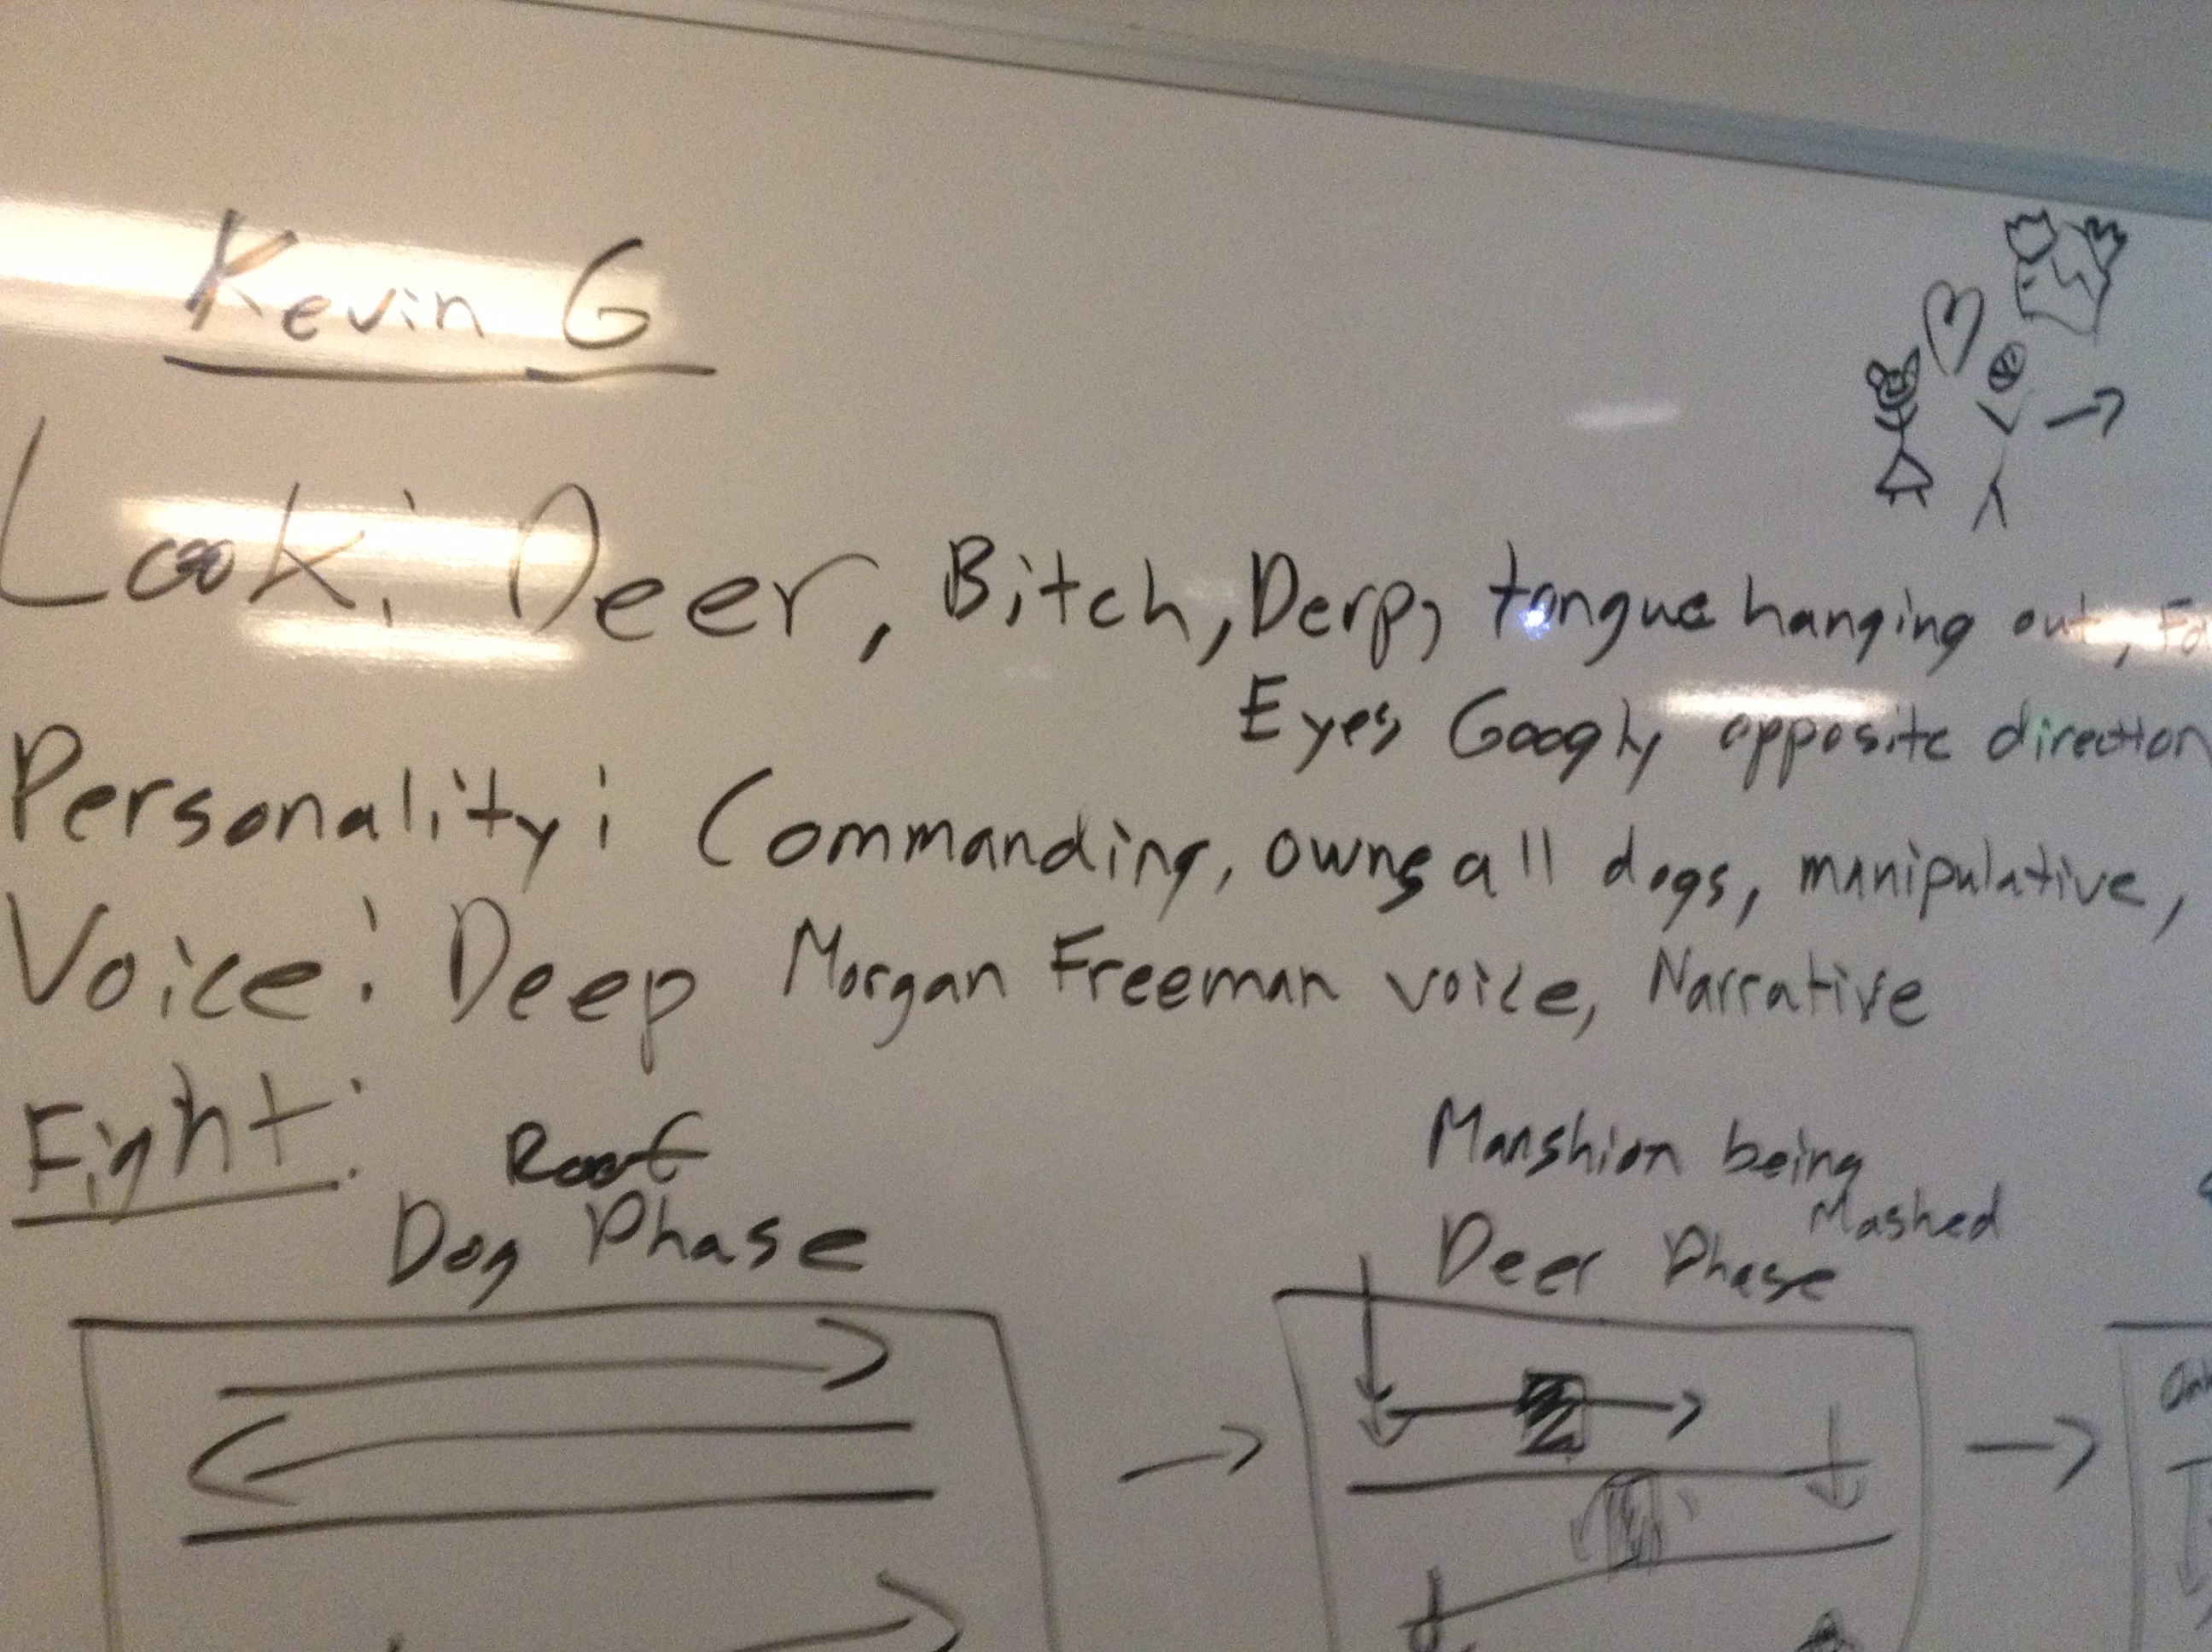 Kevin G
Look: Deer, Bitch, Derp, tongue hanging out,
Eyes Googly opposite direction
Personality: Commanding, owns all dogs, manipulative,
Voice: Deep Morgan Freeman voice, Narrative
Fight:
Roof
Dog Phase
Manshion being
Mashed
Deer Phase